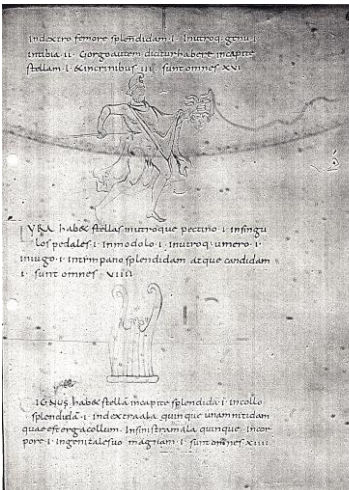 Indextro femore splendidam · I · Inutroq; genu · I
Intibia · II · Gorgo autem dicitur habere incapite
stellam · I · &incrinibus · III · sunt omnes XVI
LYRA hab& stellas inutroque pectino · I · insingu
los pedales · I · Inmodolo · I · inutroq; umero · I ·
iniugo · I · intimpano splendidam atque candidam
I · sunt omnes · VIIII
IGNUS hab& stellā incapite splendidā · I · incollo
splendidā · I · indextraala quinque unam nitidam
quae est erga collum · Insinistramala quinque · Incor
pore · I · ingenitalesuo magnam · I · sunt omnes XIIII